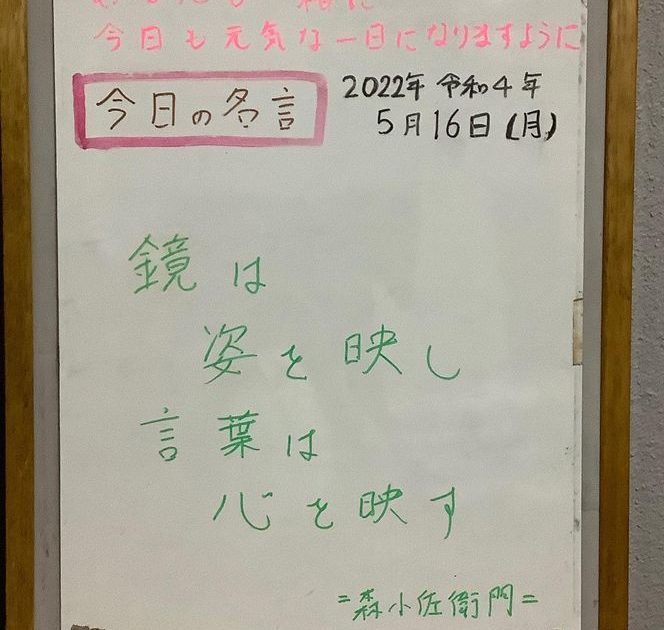 今日も元気な一日になりますように
今日の名言
2022年 令和4年
5月16日(月)
鏡は
姿を映し
言葉は
心を映す
=森小佐衛門=